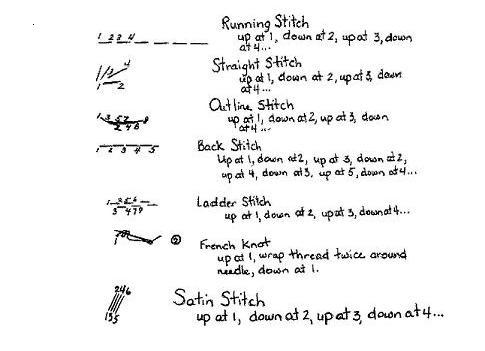 Running Stitch
1 2 3 4
up at 1, down at 2, up at 3, down
at 4...
Straight Stitch
1 3 4
1 2
up at 1, down at 2, up at 3, down
at 4...
Outline Stitch
1 3 5 7 9
2 4 6 8
up at 1, down at 2, up at 3, down
at 4...
Back Stitch
1 2 3 4 5
Up at 1, down at 2, up at 3, down at 2,
up at 4, down at 3, up at 5, down at 4...
Ladder Stitch
1 2 5 6
3 4 7 9
up at 1, down at 2, up at 3, down at 4...
French Knot
1
2
up at 1, wrap thread twice around
needle, down at 1.
Satin Stitch
2 4 6
1 3 5
up at 1, down at 2, up at 3, down at 4...